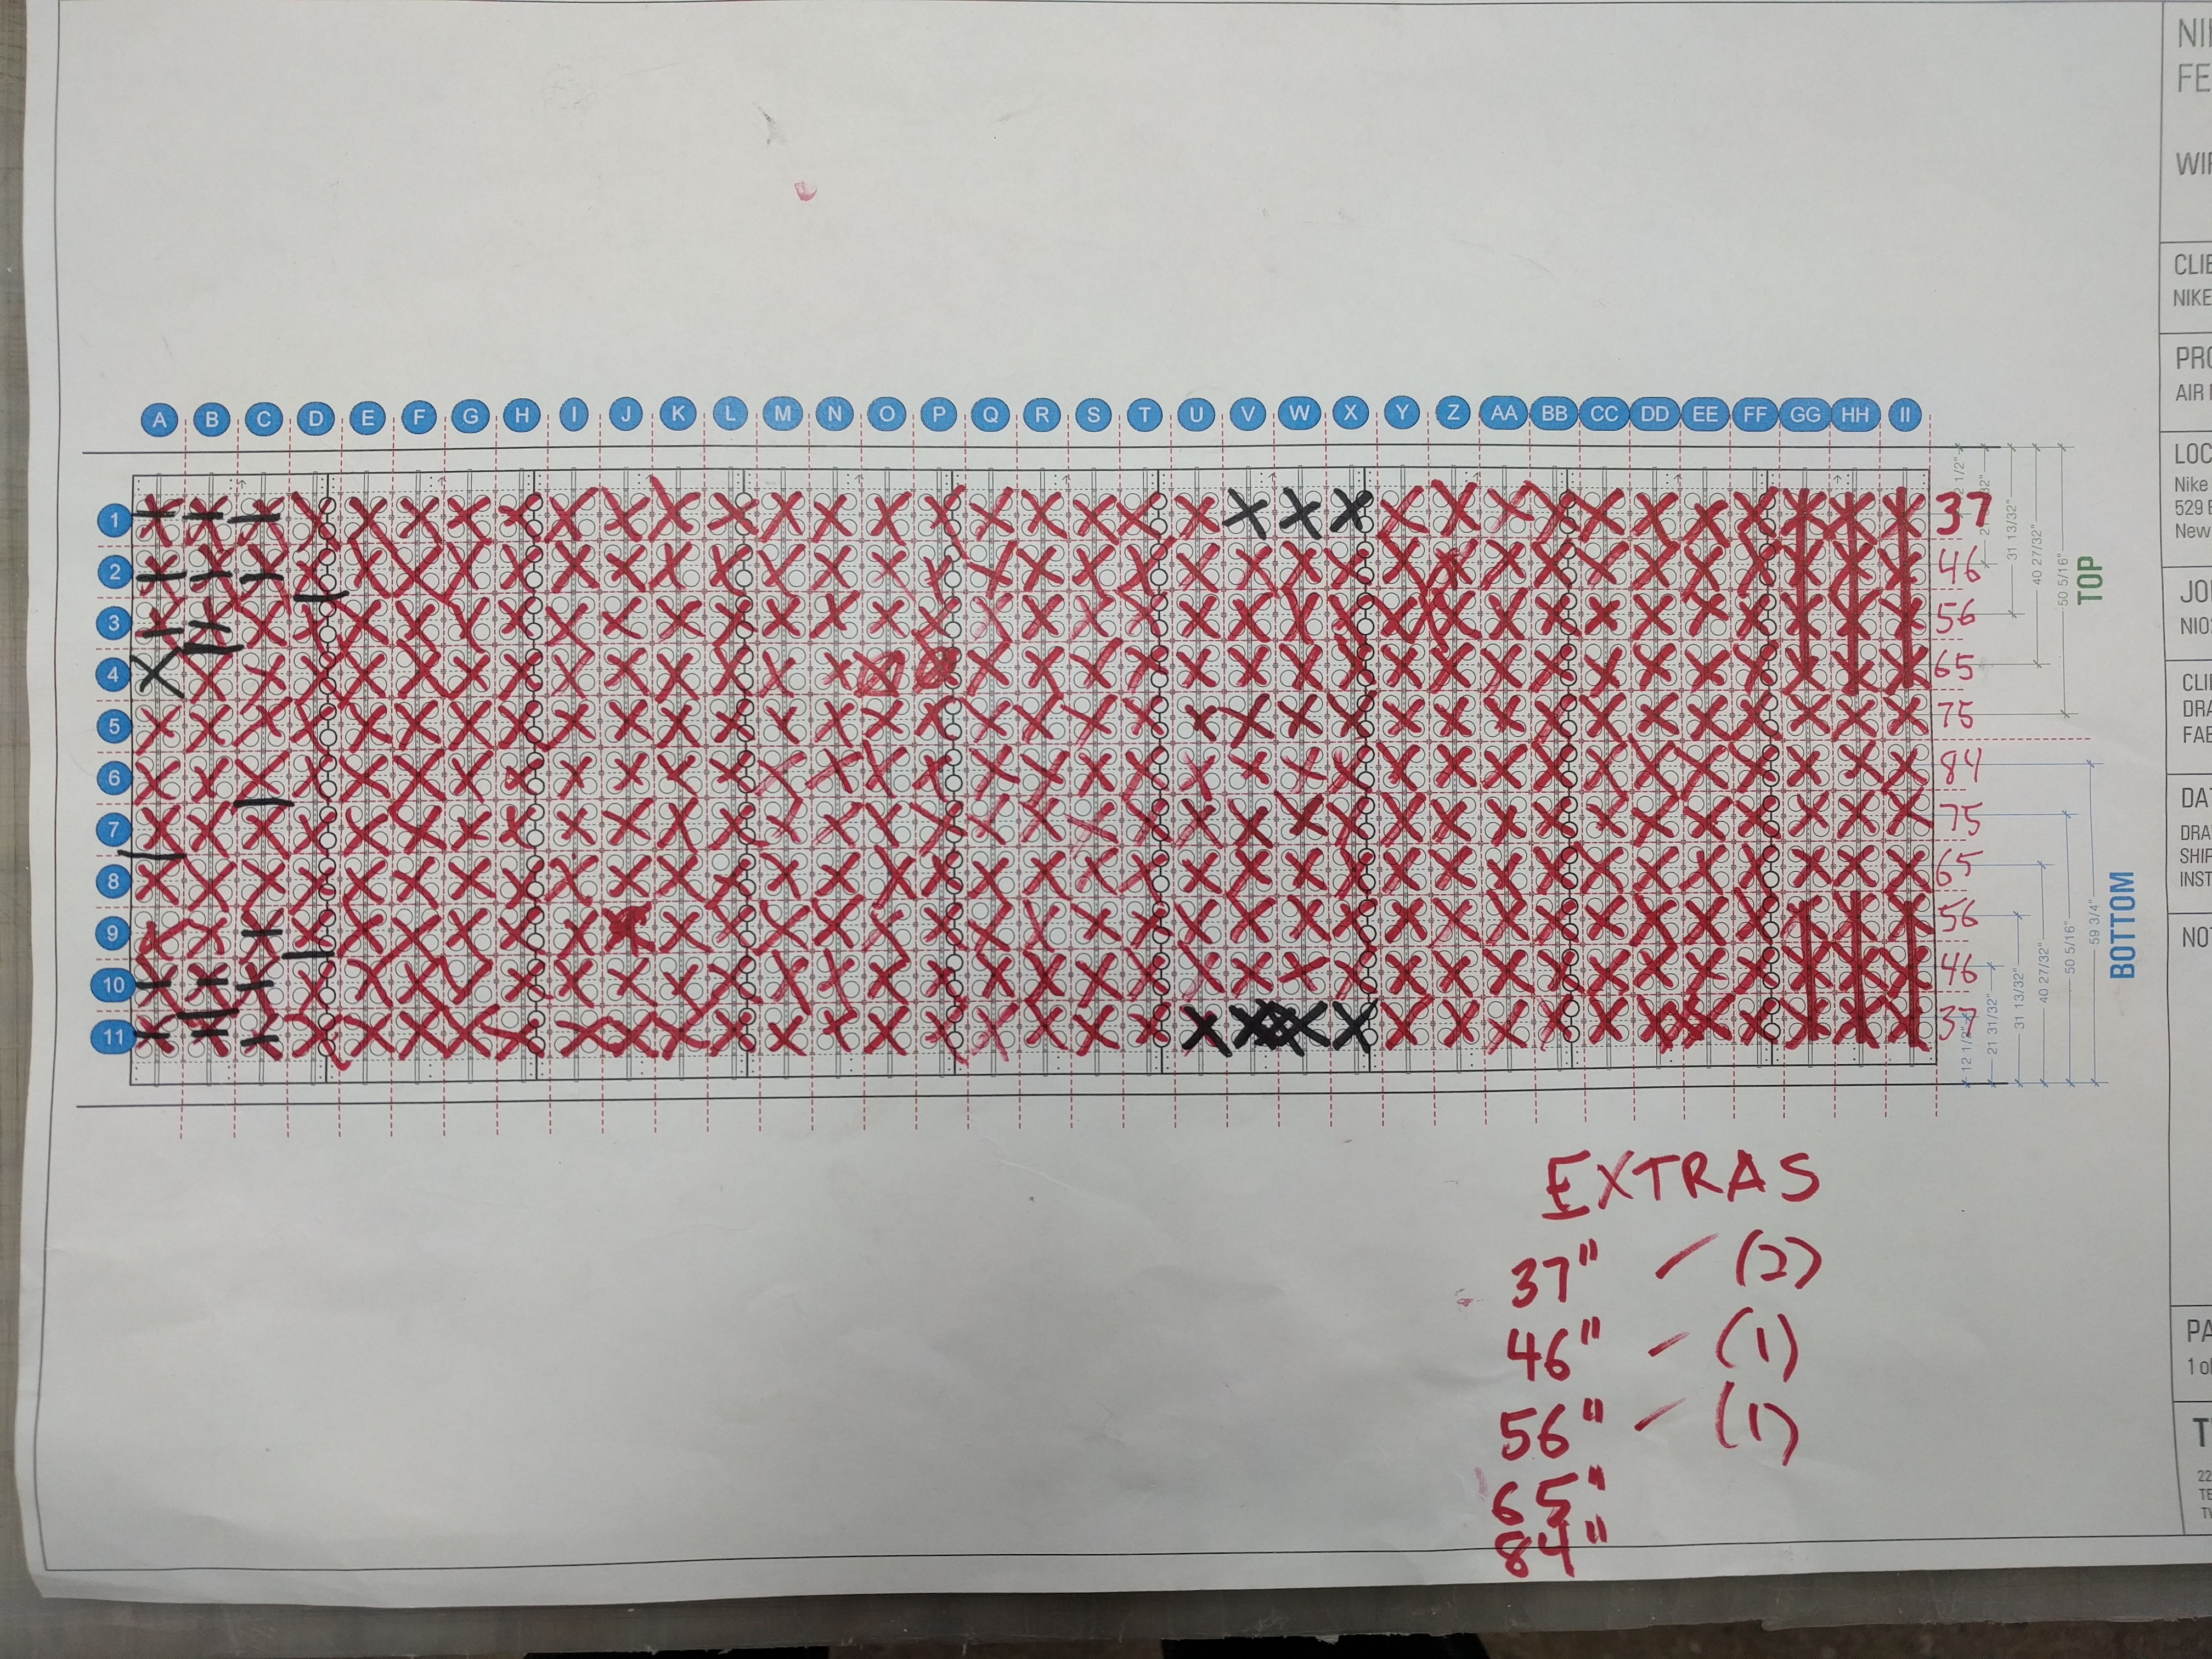 A B C D E F G H I J K L M N O P Q R S T U V W X Y Z AA BB CC DD EE FF GG HH II
1 37
2 46
3 56
4 65
5 75
6 84
7 75
8 65
9 56
10 46
11 37
31 13/32"
40 27/32"
50 5/16"
TOP
12 1/2"
21 31/32"
31 13/32"
40 27/32"
50 5/16"
59 3/4"
BOTTOM
EXTRAS
37" - (2)
46" - (1)
56" - (1)
65"
84"
NI
FE
WI
CLIE
NIKE
PRO
AIR
LOC
Nike
529
New
JO
NI0
CLI
DRA
FAB
DAT
DRA
SHIP
INST
NOT
PA
1 of
T
22
TE
TV